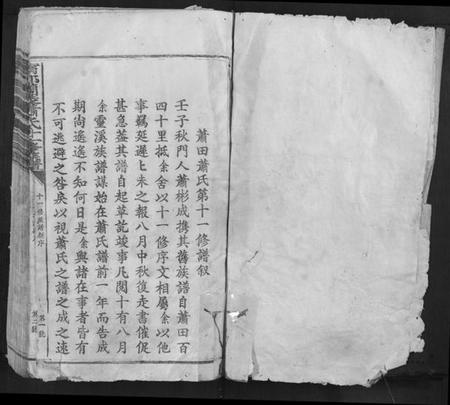 蕭田蕭氏第十一修譜叙
壬子秋門人蕭彬成携其舊族譜自蕭田百
四十里抵余舍以十一修序文相屬余以他
事羈延遲上未之報八月中秋復走書催促
甚急蓋其譜自起草訖竣事凡閱十有八月
余靈溪族譜謀始在蕭氏譜前一年而告成
期尚遙遙不知何日是余與諸在事者皆有
不可逃避之咎矣以視蕭氏之譜之成之速